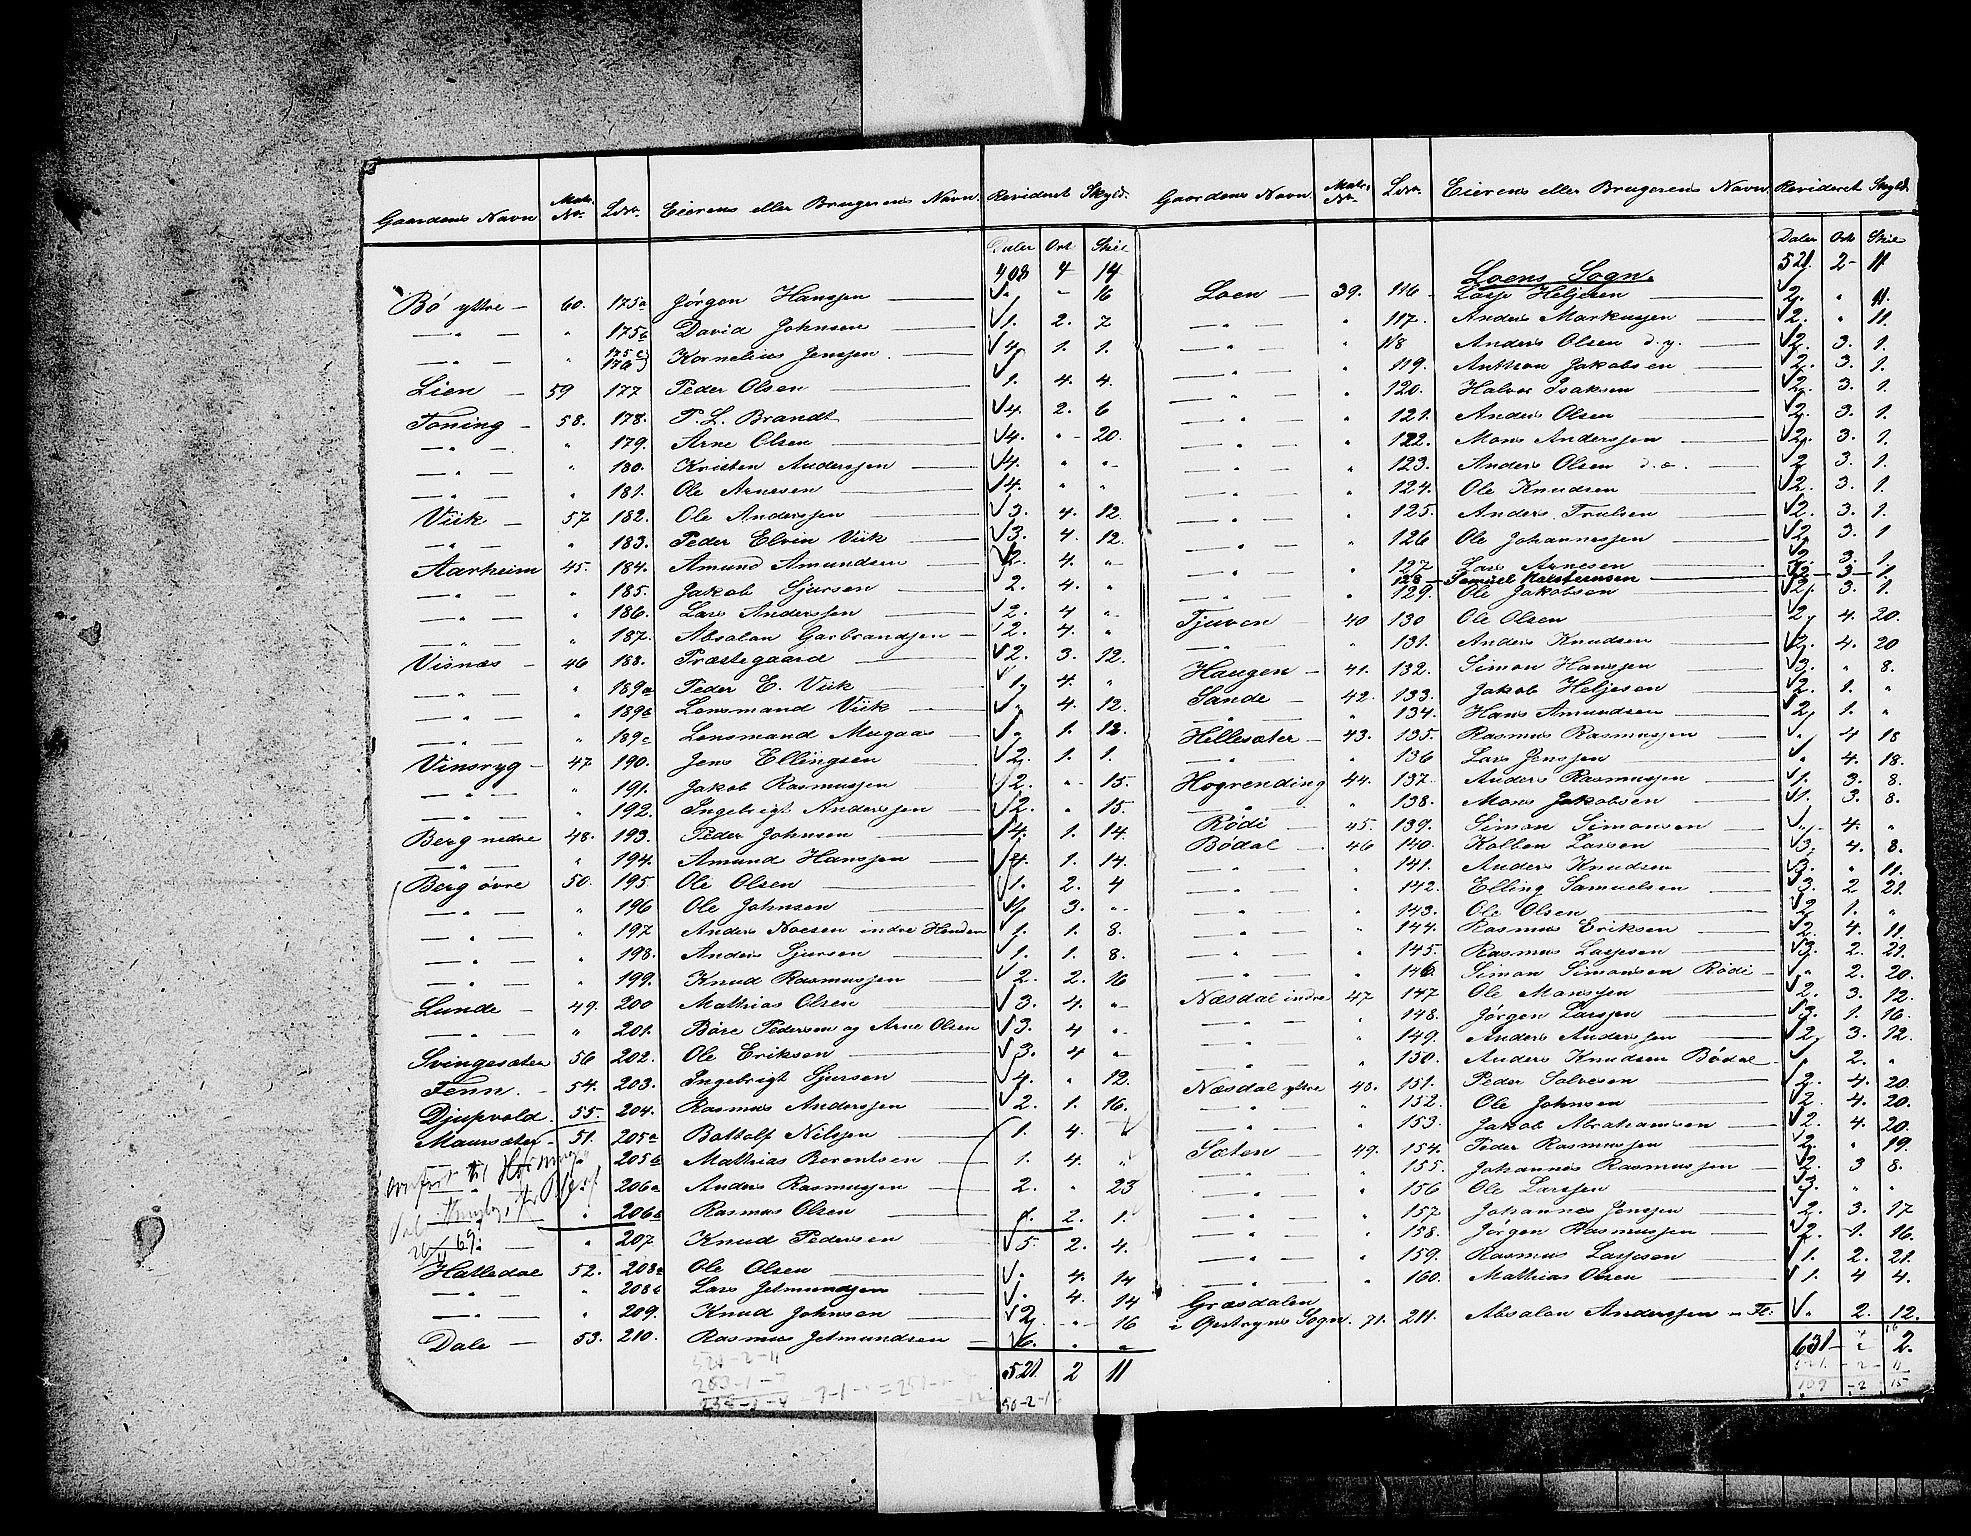 Gaardens Navn Matr. Nr. Lbnr. Eierens eller Brugerens Navn. Revideret Skyld.
Daler Ort Skil
408 4 14
Bö yttre — 60. 175a Jørgen Hanssen — " - 16
— " — " 175b David Johnsen — 1. 2. 7
— " — " 175c 176 Kornelius Jenssen — 4. 1. 1.
Lien — 59 177 Peder Olsen — 1. 4. 4.
Toning — 58. 178. P. L. Brandt — 4. 2. 6
— " — " 179. Arne Olsen — 4. " 20.
— " — " 180. Kristen Anderssen — 4. " "
— " — " 181. Ole Arnesen — 4. " "
Viik — 57 182. Ole Anderssen — 3. 4. 12.
— " — " 183. Peder Elven Viik — 3. 4. 12.
Aarheim 45. 184. Amund Amundsen — 2. 4. "
— " — " 185. Jakob Sjursen — 2. 4. "
— " — " 186. Lars Anderssen — 2. 4 "
— " — " 187. Absalon Garbrandsen — 2. 4. "
Visnæs — 46 188. Præstegaard — 2. 3. 12.
— " — " 189a Peder E. Viik — 1. 4. "
— " — " 189b Lensmand Viik — " 4. 12.
— " — " 189c Lensmand Mugaas — " 1. 12.
Vinsryg — 47 190. Jens Ellingsen — 2. 1. 1.
— " — " 191. Jakob Rasmussen — 2. " 15.
— " — " 192. Ingebrigt Anderssen — 2. " 15.
Berg nedre 48. 193. Peder Johnsen — 4. 1. 14.
— " — " 194. Amund Hanssen — 4. 1. 14.
Berg øvre 50. 195 Ole Olsen — 1. 2. 4
— " — " 196 Ole Johnsen — 1. 3. "
— " — " 197 Anders Koesen indre Henden 1. 1. 8.
— " — " 198. Anders Sjursen — 1. 1. 8.
— " — " 199. Knud Rasmussen — 2. 2. 16
Lunde — 49. 200 Mathias Olsen — 3. 4. "
— " — " 201. Bare Pedersen og Arne Olsen 3. 4 "
Svingesæter 56 202. Ole Eriksen — 3. 4 "
Tenn. — 54. 203. Ingebrigt Sjursen — 4. " 12.
Djupvold 55. 204. Rasmus Anderssen — 2. 1. 16.
Maursæter — 51. 205a Bottolf Nilssen — 1. 4.
" 205b Mathias Berentsen — 1. 4. "
overført til Horning-
" 206a Anders Rasmussen — 2. " 23
dal
" 206b Rasmus Olsen — 1. 2. 1.
69
" 207 Knud Pedersen — 5. 2. 4.
Hatledal 52. 208a Ole Olsen — " 4. 14
— " — " 208b Lars Jetmundsen — " 4. 14
— " — " 209. Knud Johnsen — 2. " 16
Dale — 53. 210. Rasmus Jetmundsen — 6. " "
521 2 11
521-2-11
263-1-7
50-2-1

Gaardens Navn Matr. Nr. Lbnr. Eierens eller Brugerens Navn Revideret Skyld.
Daler Ort Skil
Loens Sogn. 521. 2 - 11
Loen — 39. 116 Lasse Heljesen — 2. " 11.
— " — " 117. Anders Markussen — 2. " 11.
— " — " 118 Anders Olsen d. y. — 2. 3. 1.
— " — " 119. Anthon Jakobsen — 2. 3. 1.
— " — " 120. Halvor Isaksen — 2. 3. 1.
— " — " 121. Anders Olsen — 2. 3. 1.
— " — " 122. Mons Anderssen — 2. 3. 1.
— " — " 123. Anders Olsen d. æ. — 2. 3. 1.
— " — " 124. Ole Knudsen — 2. 3. 1.
— " — " 125. Anders Trulsen — 2. 3. 1.
— " — " 126 Ole Johannessen — 2. 3. 1
— " — " 127 Lars Arnesen — 2. 3. 1.
128 — Samuel Karstensen — 2 — 3 — 1.
— " — " 129. Ole Jakobsen — 2. 3. 1.
Tjuven — 40 130 Ole Olsen — 2. 4. 20.
— " — " 131. Anders Knudsen — 2. 4. 20
Haugen — 41. 132. Simon Hanssen — 3. " 8.
Sande — 42. 133. Jakob Heljesen — 2. 1. "
— " — " 134. Hans Amundsen — 2. 1. "
Hillesæter — 43. 135. Rasmus Rasmussen — " 4 18
— " — " 136 Lars Jenssen — " 4. 18.
Hogrending 44. 137. Anders Rasmussen — 1. 3. 8.
— " — " 138. Mons Jakobsen — 1. 3. 8.
Rødi — 45. 139. Simon Simonsen — " 4. "
Bødal — 46 140. Kolben Lassen — 3. 4. 8.
— " — " 141. Anders Knudsen — 3. " 11.
— " — " 142. Elling Samuelsen — 3. 2 21.
— " — " 143. Ole Olsen — 2. 1. "
— " — " 144. Rasmus Eriksen — 2. 4. 11.
— " — " 145. Rasmus Lassesen — 3. 2. 21.
— " — " 146. Simon Simonsen Rødi — " 2. 20.
Næsdal indre 47 147 Ole Monssen — 2. 3. 12.
— " — " 148. Jørgen Larssen — 3. 1. 16.
— " — " 149. Anders Anderssen — 2. 3. 12.
— " — " 150. Anders Knudsen Bødal — " 2. "
Næsdal yttre 48. 151. Peder Salvesen — 2. 4. 20.
— " — " 152. Ole Johnsen — 2. 4. 20.
— " — " 153. Jakob Abrahamsen — 2. 4. 20.
Sæten — 49. 154. Peder Rasmussen — 2. " 19.
— " — " 155. Johannes Rasmussen — 2. 3 8.
— " — " 156 Ole Larssen — 3. " "
— " — " 157 Johannes Jenssen — 2. 3. 17
— " — " 158. Jørgen Rasmussen — 2. 1. 16.
— " — " 159. Rasmus Lassesen — 1. 2. 21.
— " — " 160. Mathias Olsen — 1. 4 4.
Græsdalen
i Opstryns Sogn. 71. 211. Absalon Anderssen — " 2. 12.
631 — 2.
521. - 2 - 11
109 - 2 15